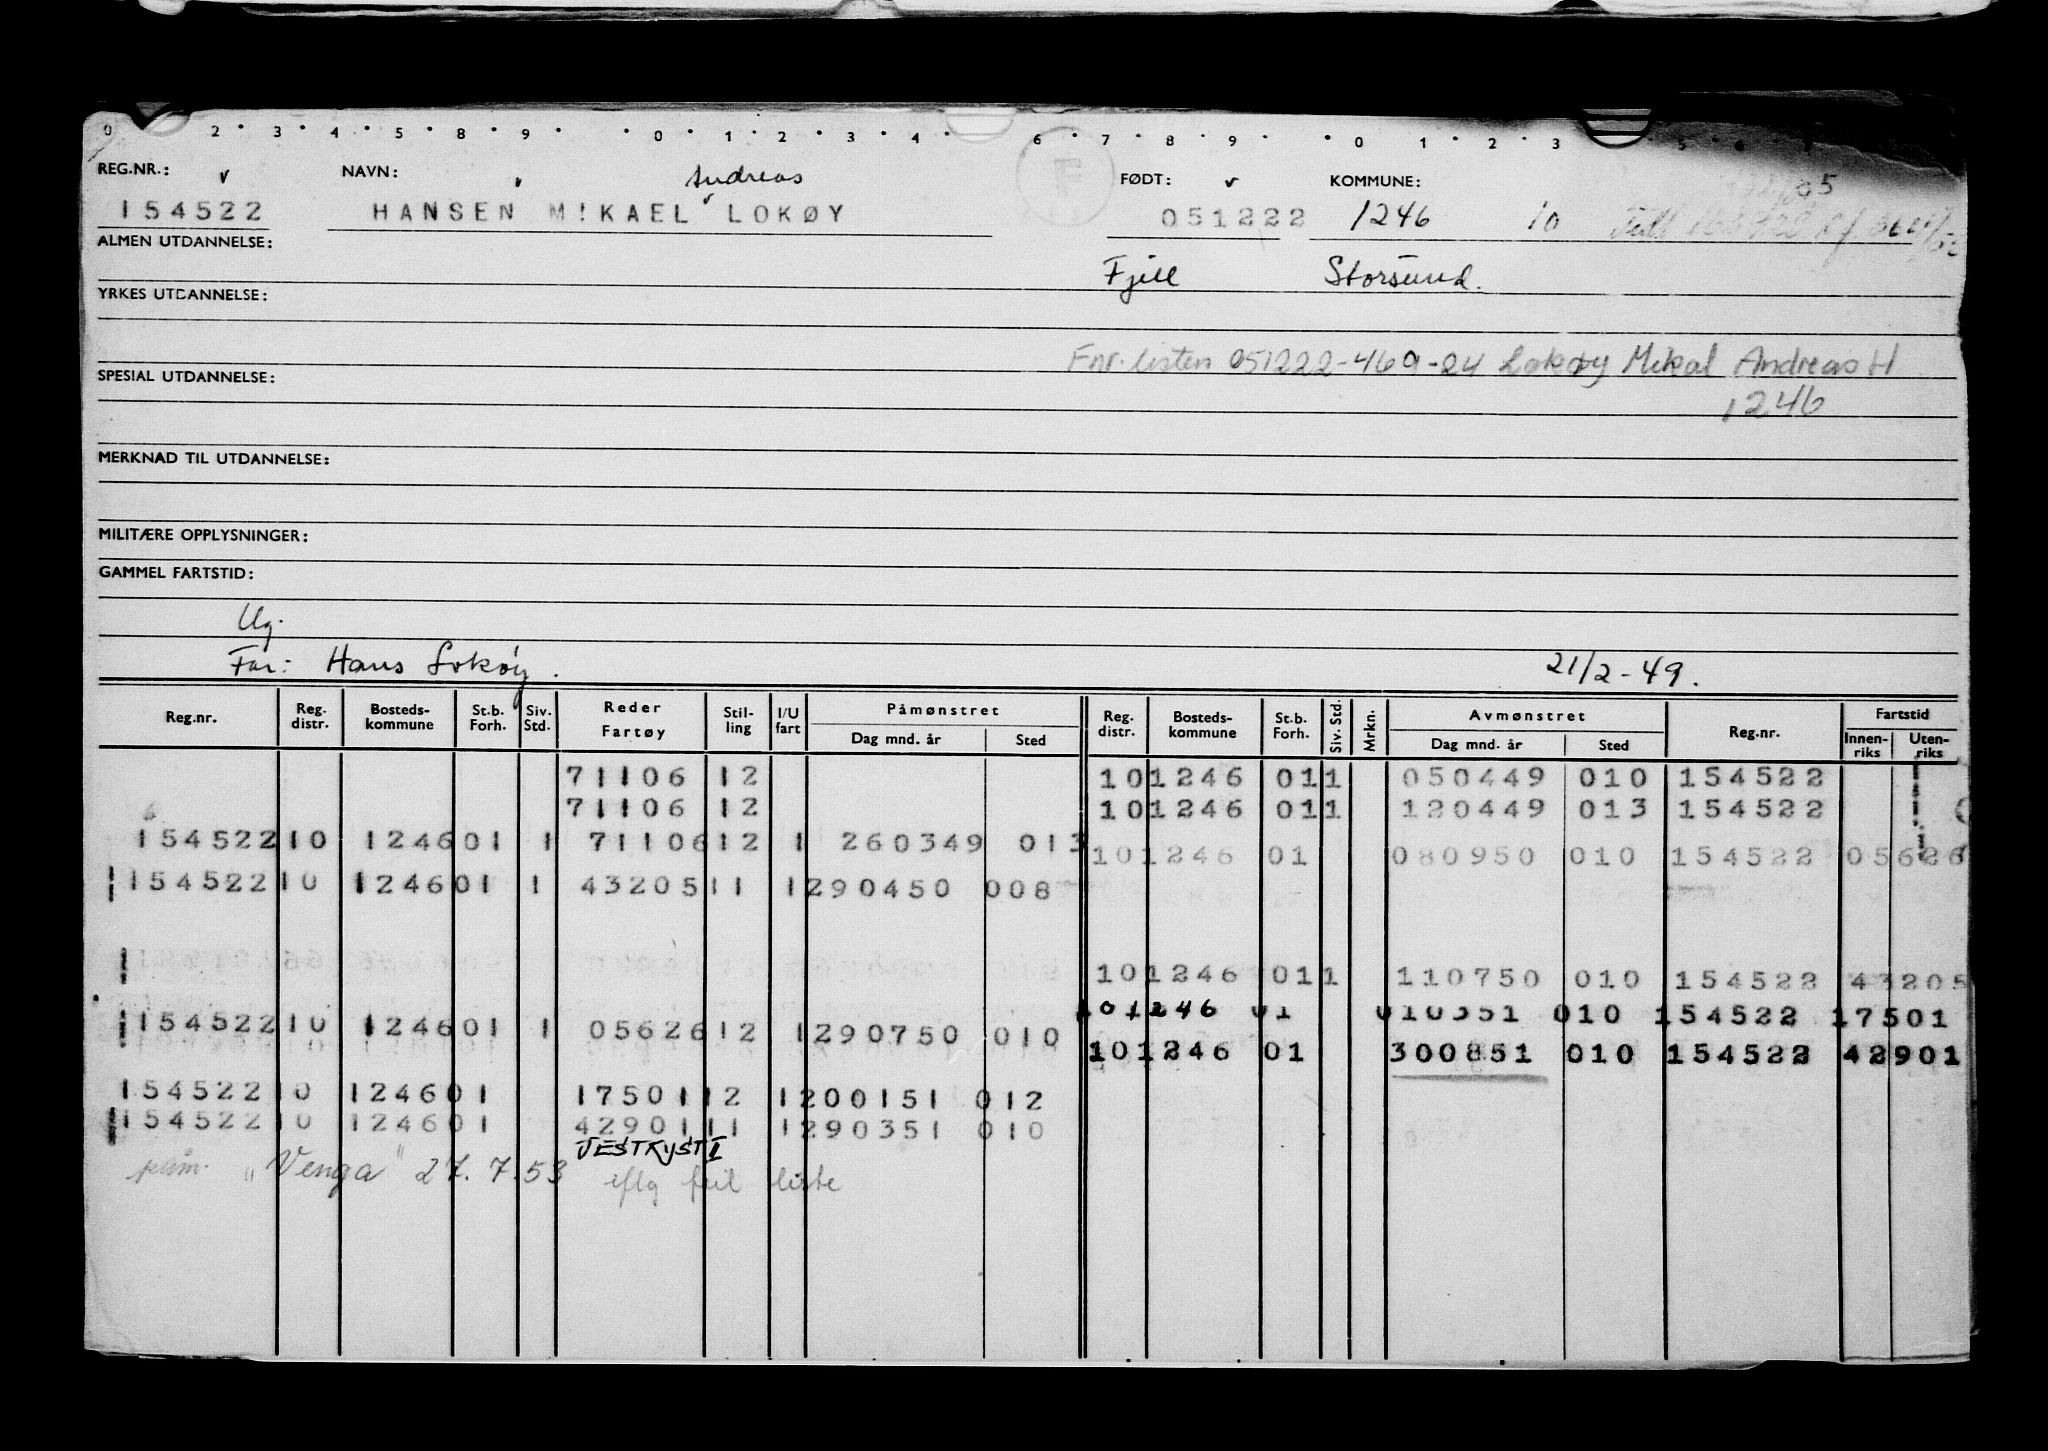 0 2 · 3 · 4 · 5 · 8 · 9 · · 0 · 1 · 2 · 3 · 4 · 6 · 7 · 8 · 9 · · 0 1 2 3 5
REG.NR.: v NAVN: Andreas F FØDT: v KOMMUNE: 05
154522 HANSEN MIKAEL LOKØY 051222 1246 10
ALMEN UTDANNELSE:
Fjell Storsund.
YRKES UTDANNELSE:
Fnr. listen 051222-469-24 Lokøy Mikal Andreas H
SPESIAL UTDANNELSE:
1246
MERKNAD TIL UTDANNELSE:
MILITÆRE OPPLYSNINGER:
GAMMEL FARTSTID:
Ug.
Far: Hans Lokøy. 21/2-49.
Reg.nr. Reg. distr. Bosteds-kommune St.b. Forh. Siv. Std. Reder Fartøy Stil-ling I/U fart Påmønstret Dag mnd. år Sted Reg. distr. Bosteds-kommune St.b. Forh. Siv. Std. Mrkn. Avmønstret Dag mnd. år Sted Reg.nr. Fartstid Innen-riks Uten-riks
71106 12 10 1246 01 1 050449 010 154522
71106 12 10 1246 01 1 120449 013 154522
154522 10 1246 01 1 71106 12 1 260349 013
10 1246 01 080950 010 154522 05626
154522 10 1246 01 1 43205 11 1 290450 008
10 1246 01 1 110750 010 154522 43205
10 1246 01 010351 010 154522 17501
154522 10 1246 01 1 05626 12 1 290750 010
10 1246 01 300851 010 154522 42901
154522 10 1246 01 17501 12 1 200151 012
154522 10 1246 01 42901 11 1 290351 010
VESTKYST I
påm. "Venga" 27.7.53 iflg feil liste